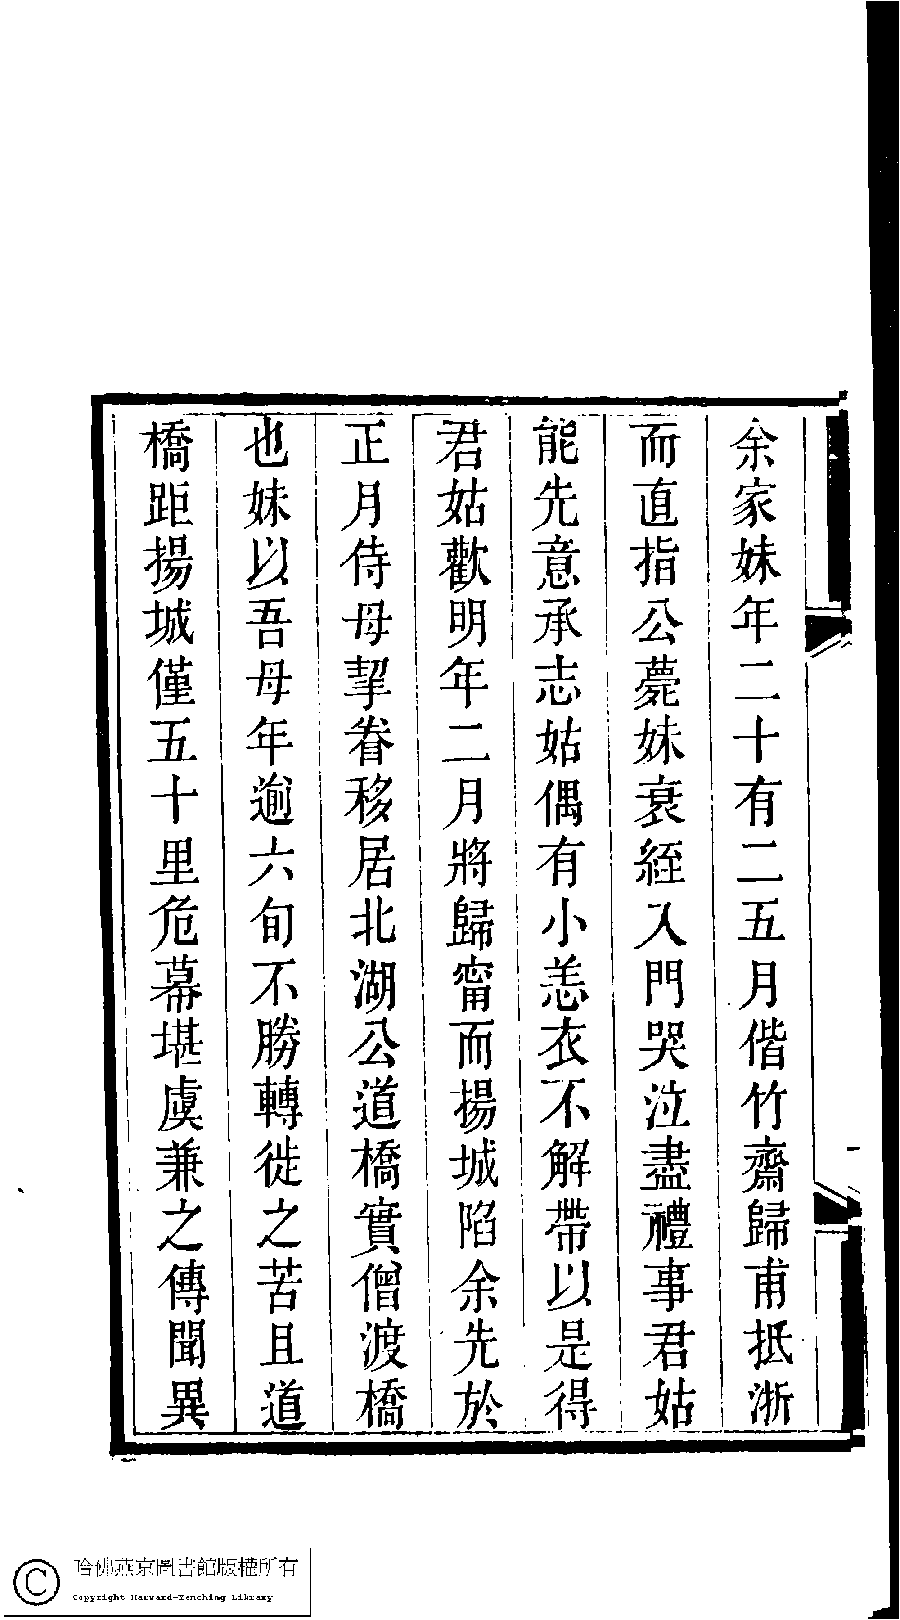 余家妹年二十有二五月偕竹齋歸甫抵浙
而直指公薨妹衰絰入門哭泣盡禮事君姑
能先意承志姑偶有小恙衣不解帶以是得
君姑歡明年二月將歸甯而揚城陷余先於
正月侍母挈眷移居北湖公道橋實僧渡橋
也妹以吾母年逾六旬不勝轉徙之苦且道
橋距揚城僅五十里危幕堪虞兼之傳聞異
哈佛燕京圖書館版權所有
Copyright Harvard-Yenching Library